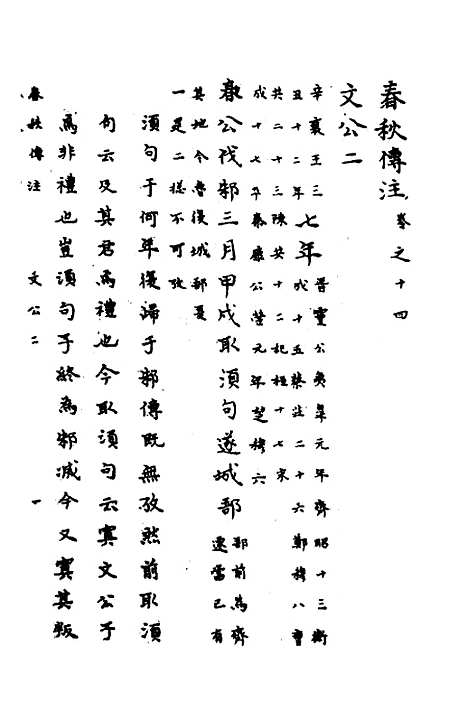 春秋傳注卷之十四
文公二
辛襄王三七年晉靈公夷皐元年齊昭十三衛
丑十二年成十五蔡莊二十六鄭穆八曹
共二十三陳共十二杞桓十七宋
成十七卒秦康公罃元年楚穆六
春公伐邾三月甲戌取須句遂城郚郚前為齊
遷當已有
其地今魯復城郚是
一是二樣不可攷
須句于何年復歸于邾傳既無攷然前取須
句云及其君焉禮也今取須句云寘文公子
焉非禮也豈須句子終為邾滅今又寘其叛
春秋傳注 文公二 一